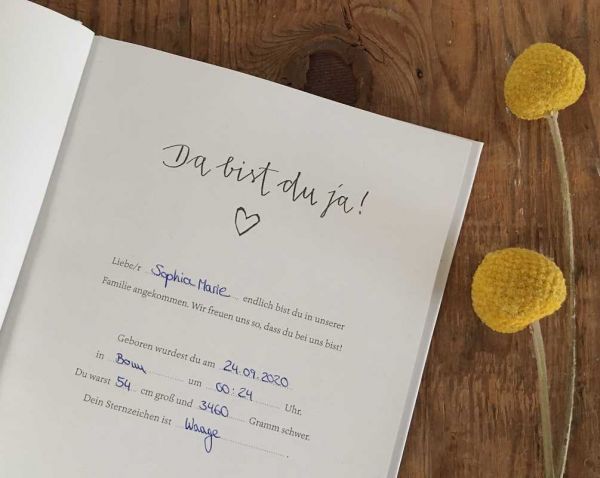 Da bist du ja!
Liebe/r Sophia Marie endlich bist du in unserer
Familie angekommen. Wir freuen uns so, dass du bei uns bist!
Geboren wurdest du am 24.09.2020
in Bonn um 00:24 Uhr.
Du warst 54 cm groß und 3460 Gramm schwer.
Dein Sternzeichen ist Waage.